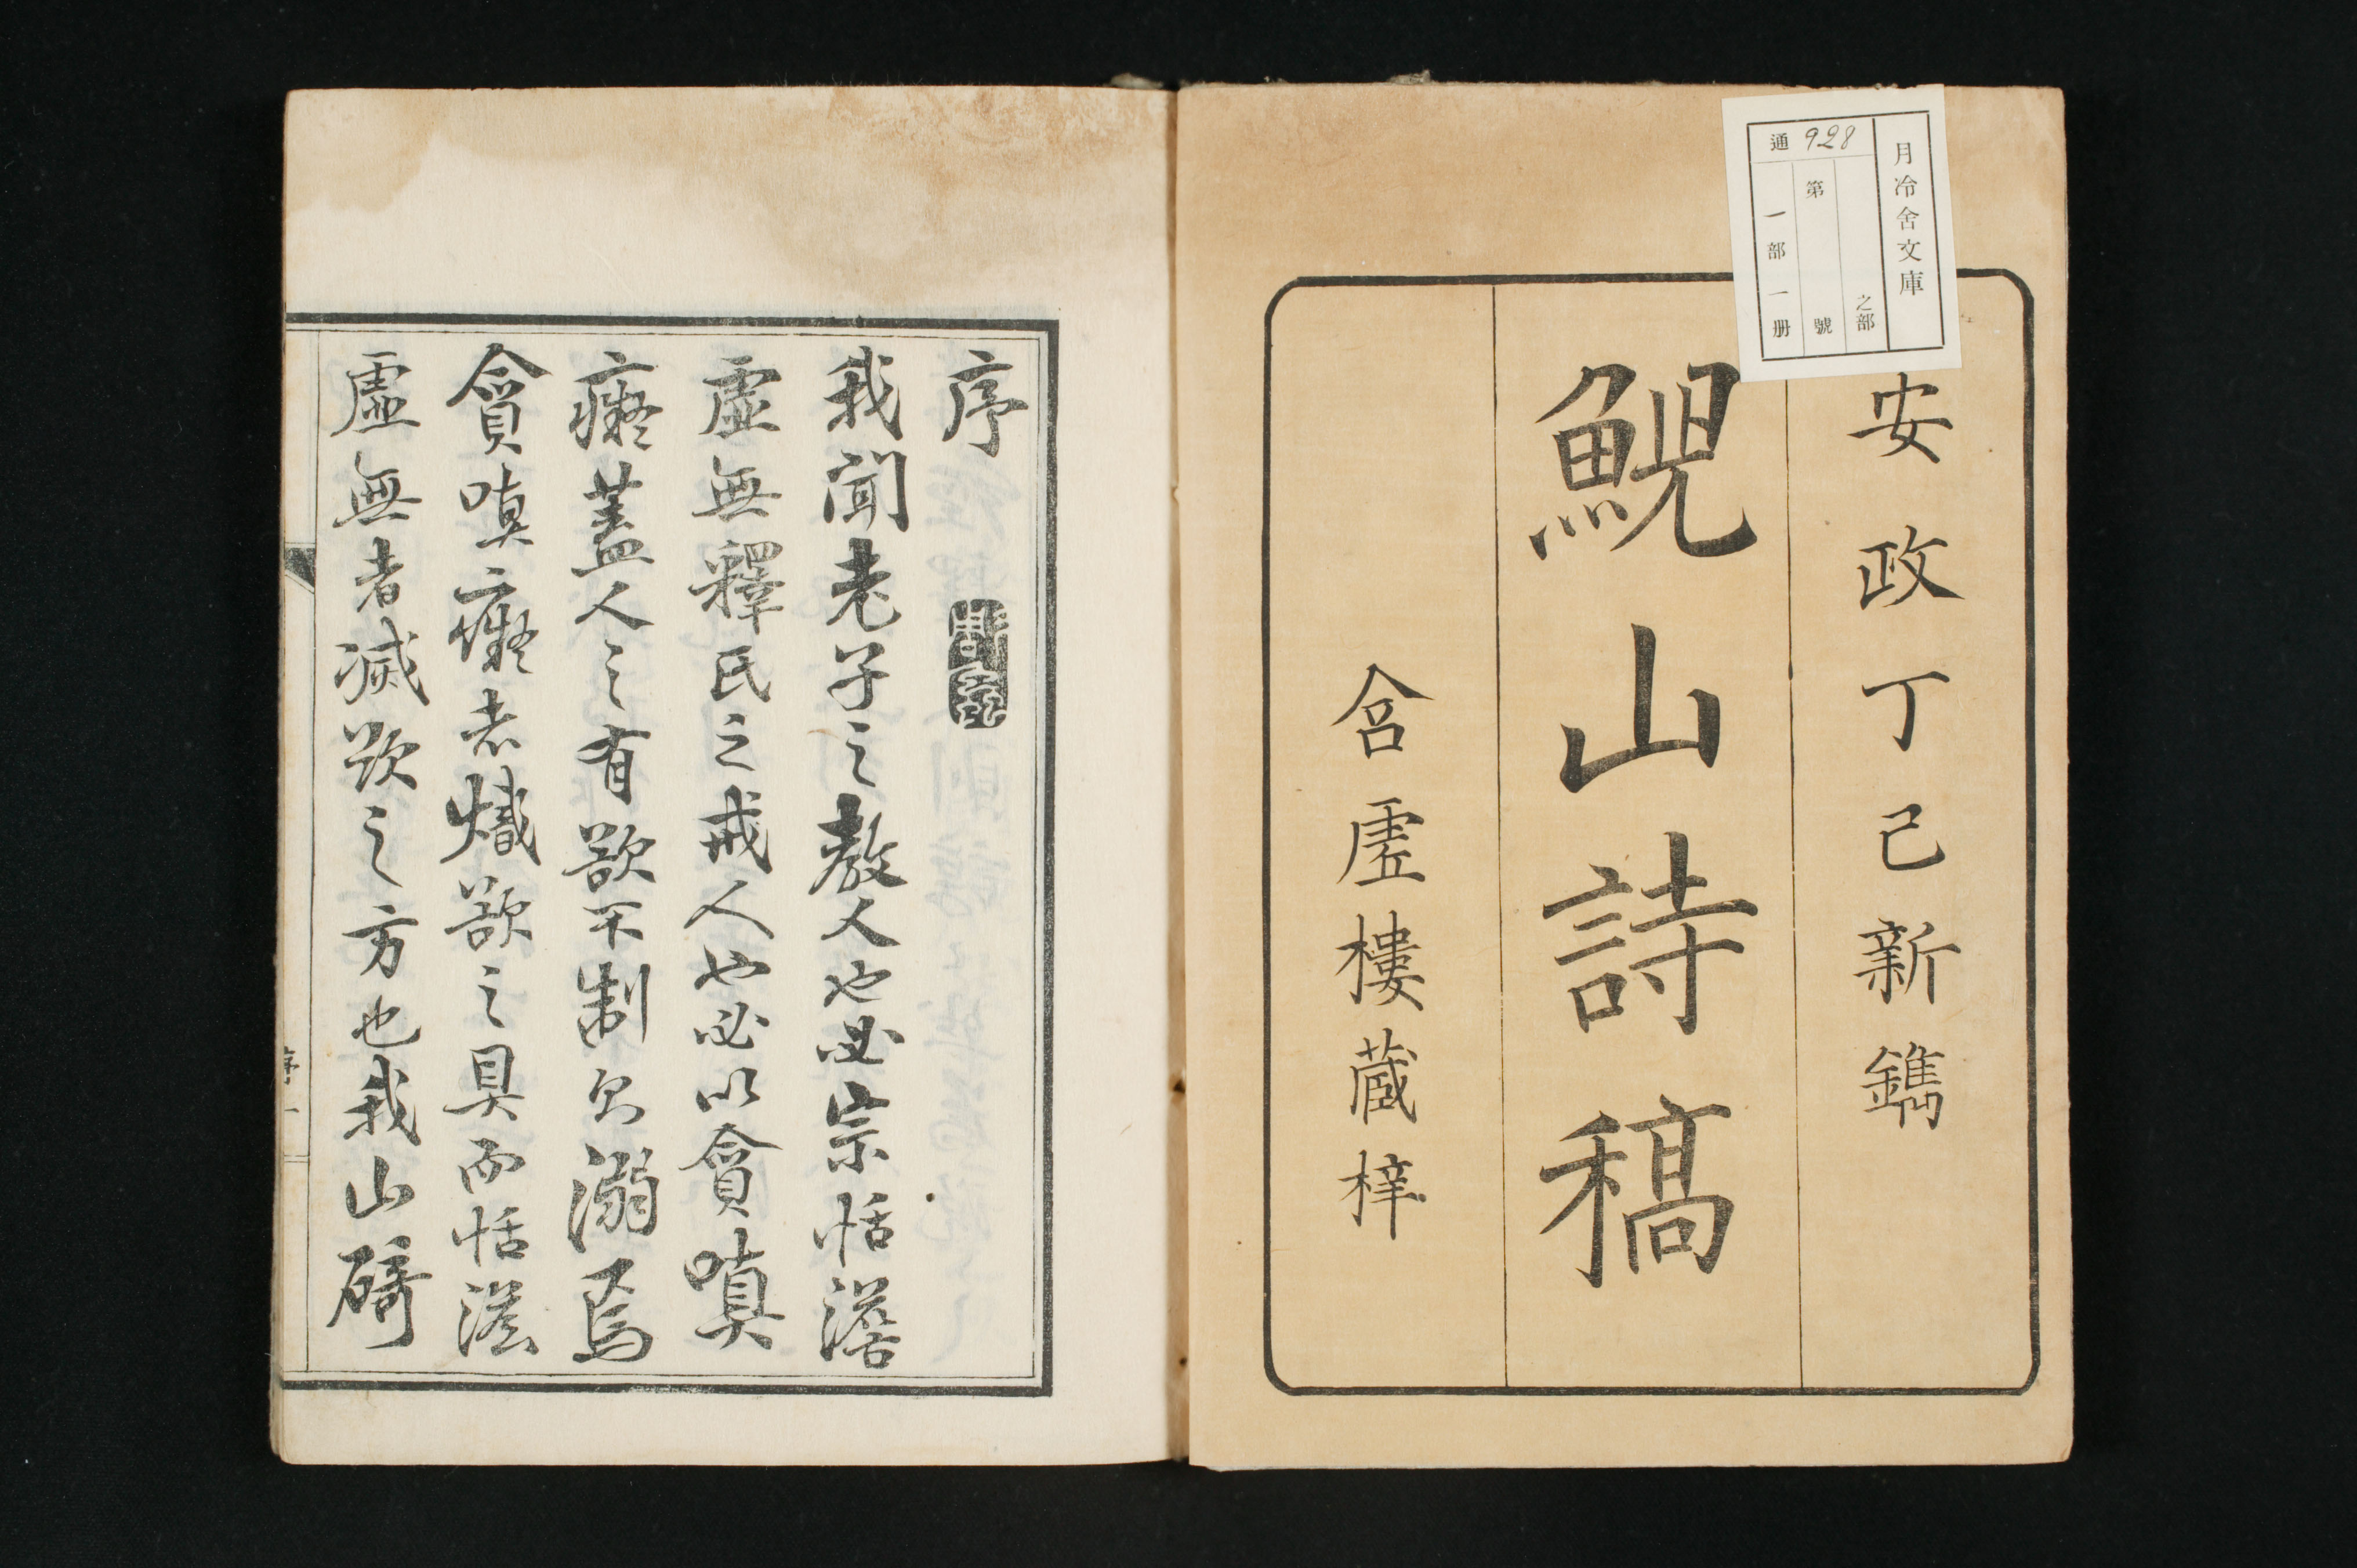 月冷舍文庫
之部
第 號
通928
一部一册
安政丁巳新鐫
鯢山詩稿
含虛樓藏梓
序
我聞老子之教人也必宗恬澹
虛無釋氏之戒人也必以貪嗔
癡蓋人之有欲不制則溺焉
貪嗔癡者熾欲之具而恬澹
虛無者滅欲之方也我山
序一